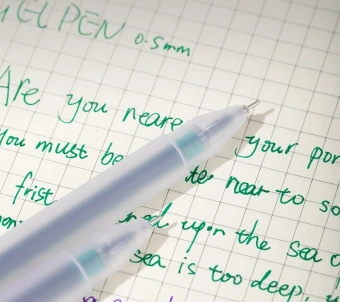 GEL PEN 0.5mm
Are you neare your por
You must be near to so
frist upon the Sea o
sea is too deep,